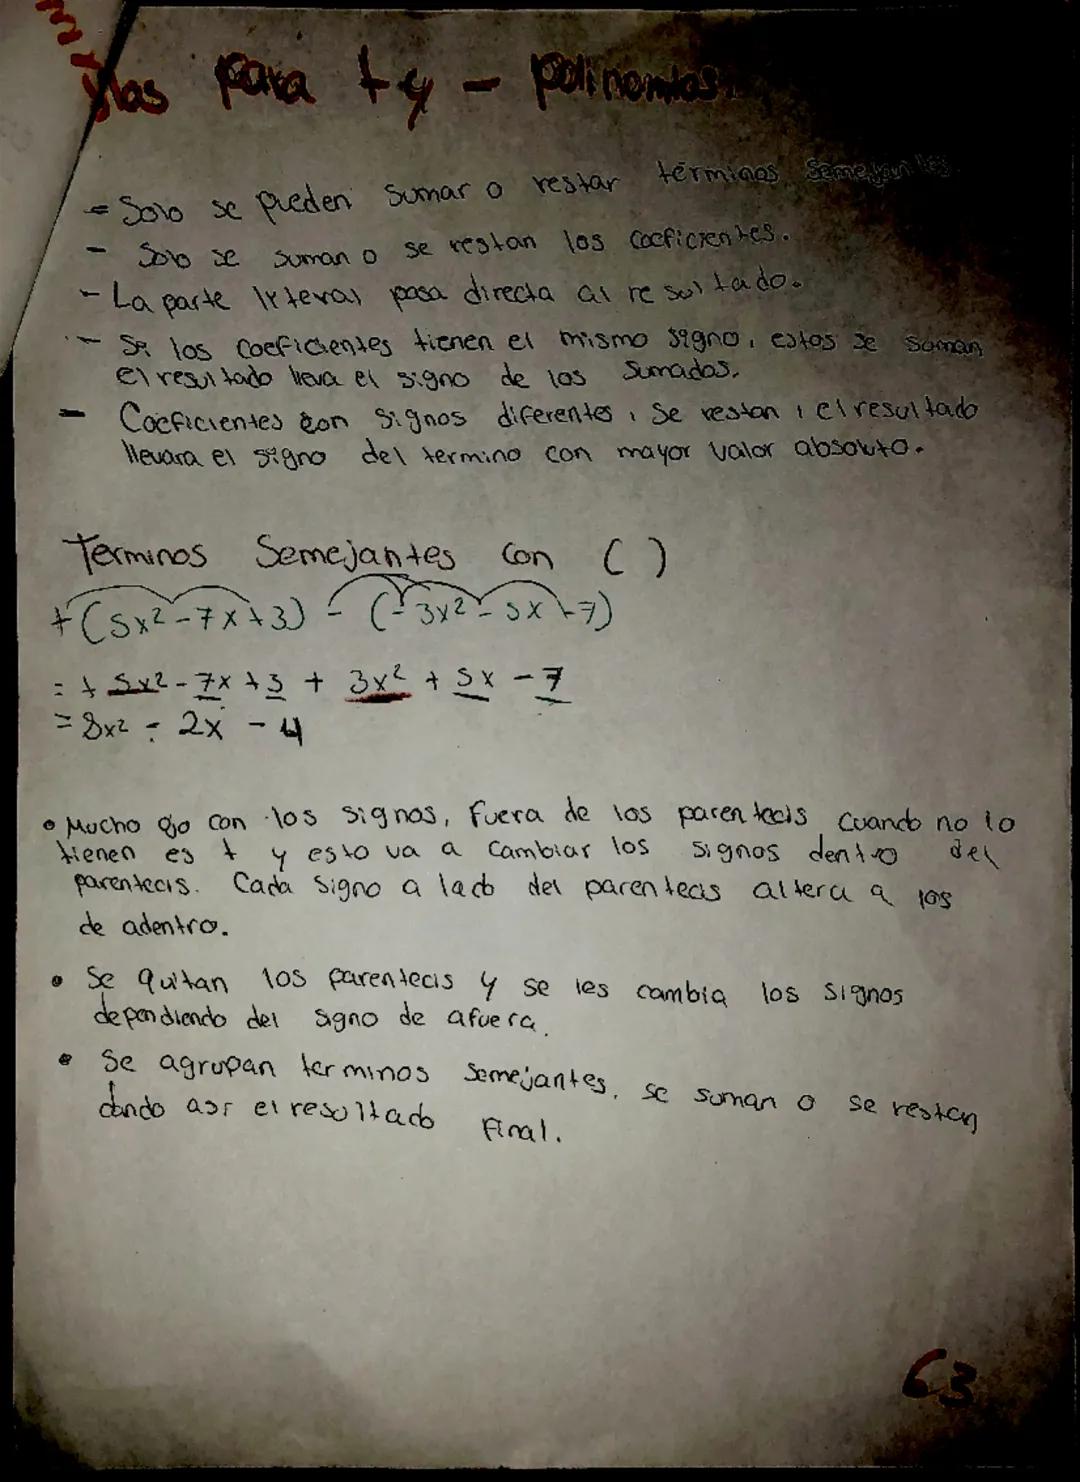 para + y - polinomios
- Solo se pueden sumar o restar términos semejantes
- Solo se suman o se restan los coeficientes.
- La parte literal pasa directa al resultado.
- Si los coeficientes tienen el mismo signo, estos se suman
el resultado lleva el signo de los sumados.
- Coeficientes con signos diferentes, se restan, el resultado
llevara el signo del termino con mayor valor absoluto.
Terminos Semejantes con ( )
+(5x²-7x+3) - (-3x²-5x+7)
= + 5x²-7x+3 + 3x² + 5x - 7
= 8x² - 2x - 4
• Mucho ojo con los signos, fuera de los parentecis cuando no lo
tienen es + y esto va a cambiar los signos dentro del
parentecis. Cada signo a lado del parentecis altera a los
de adentro.
• Se quitan los parentecis y se les cambia los signos
dependiendo del signo de afuera.
• Se agrupan terminos semejantes, se suman o se restan
dando asi el resultado Final.
63